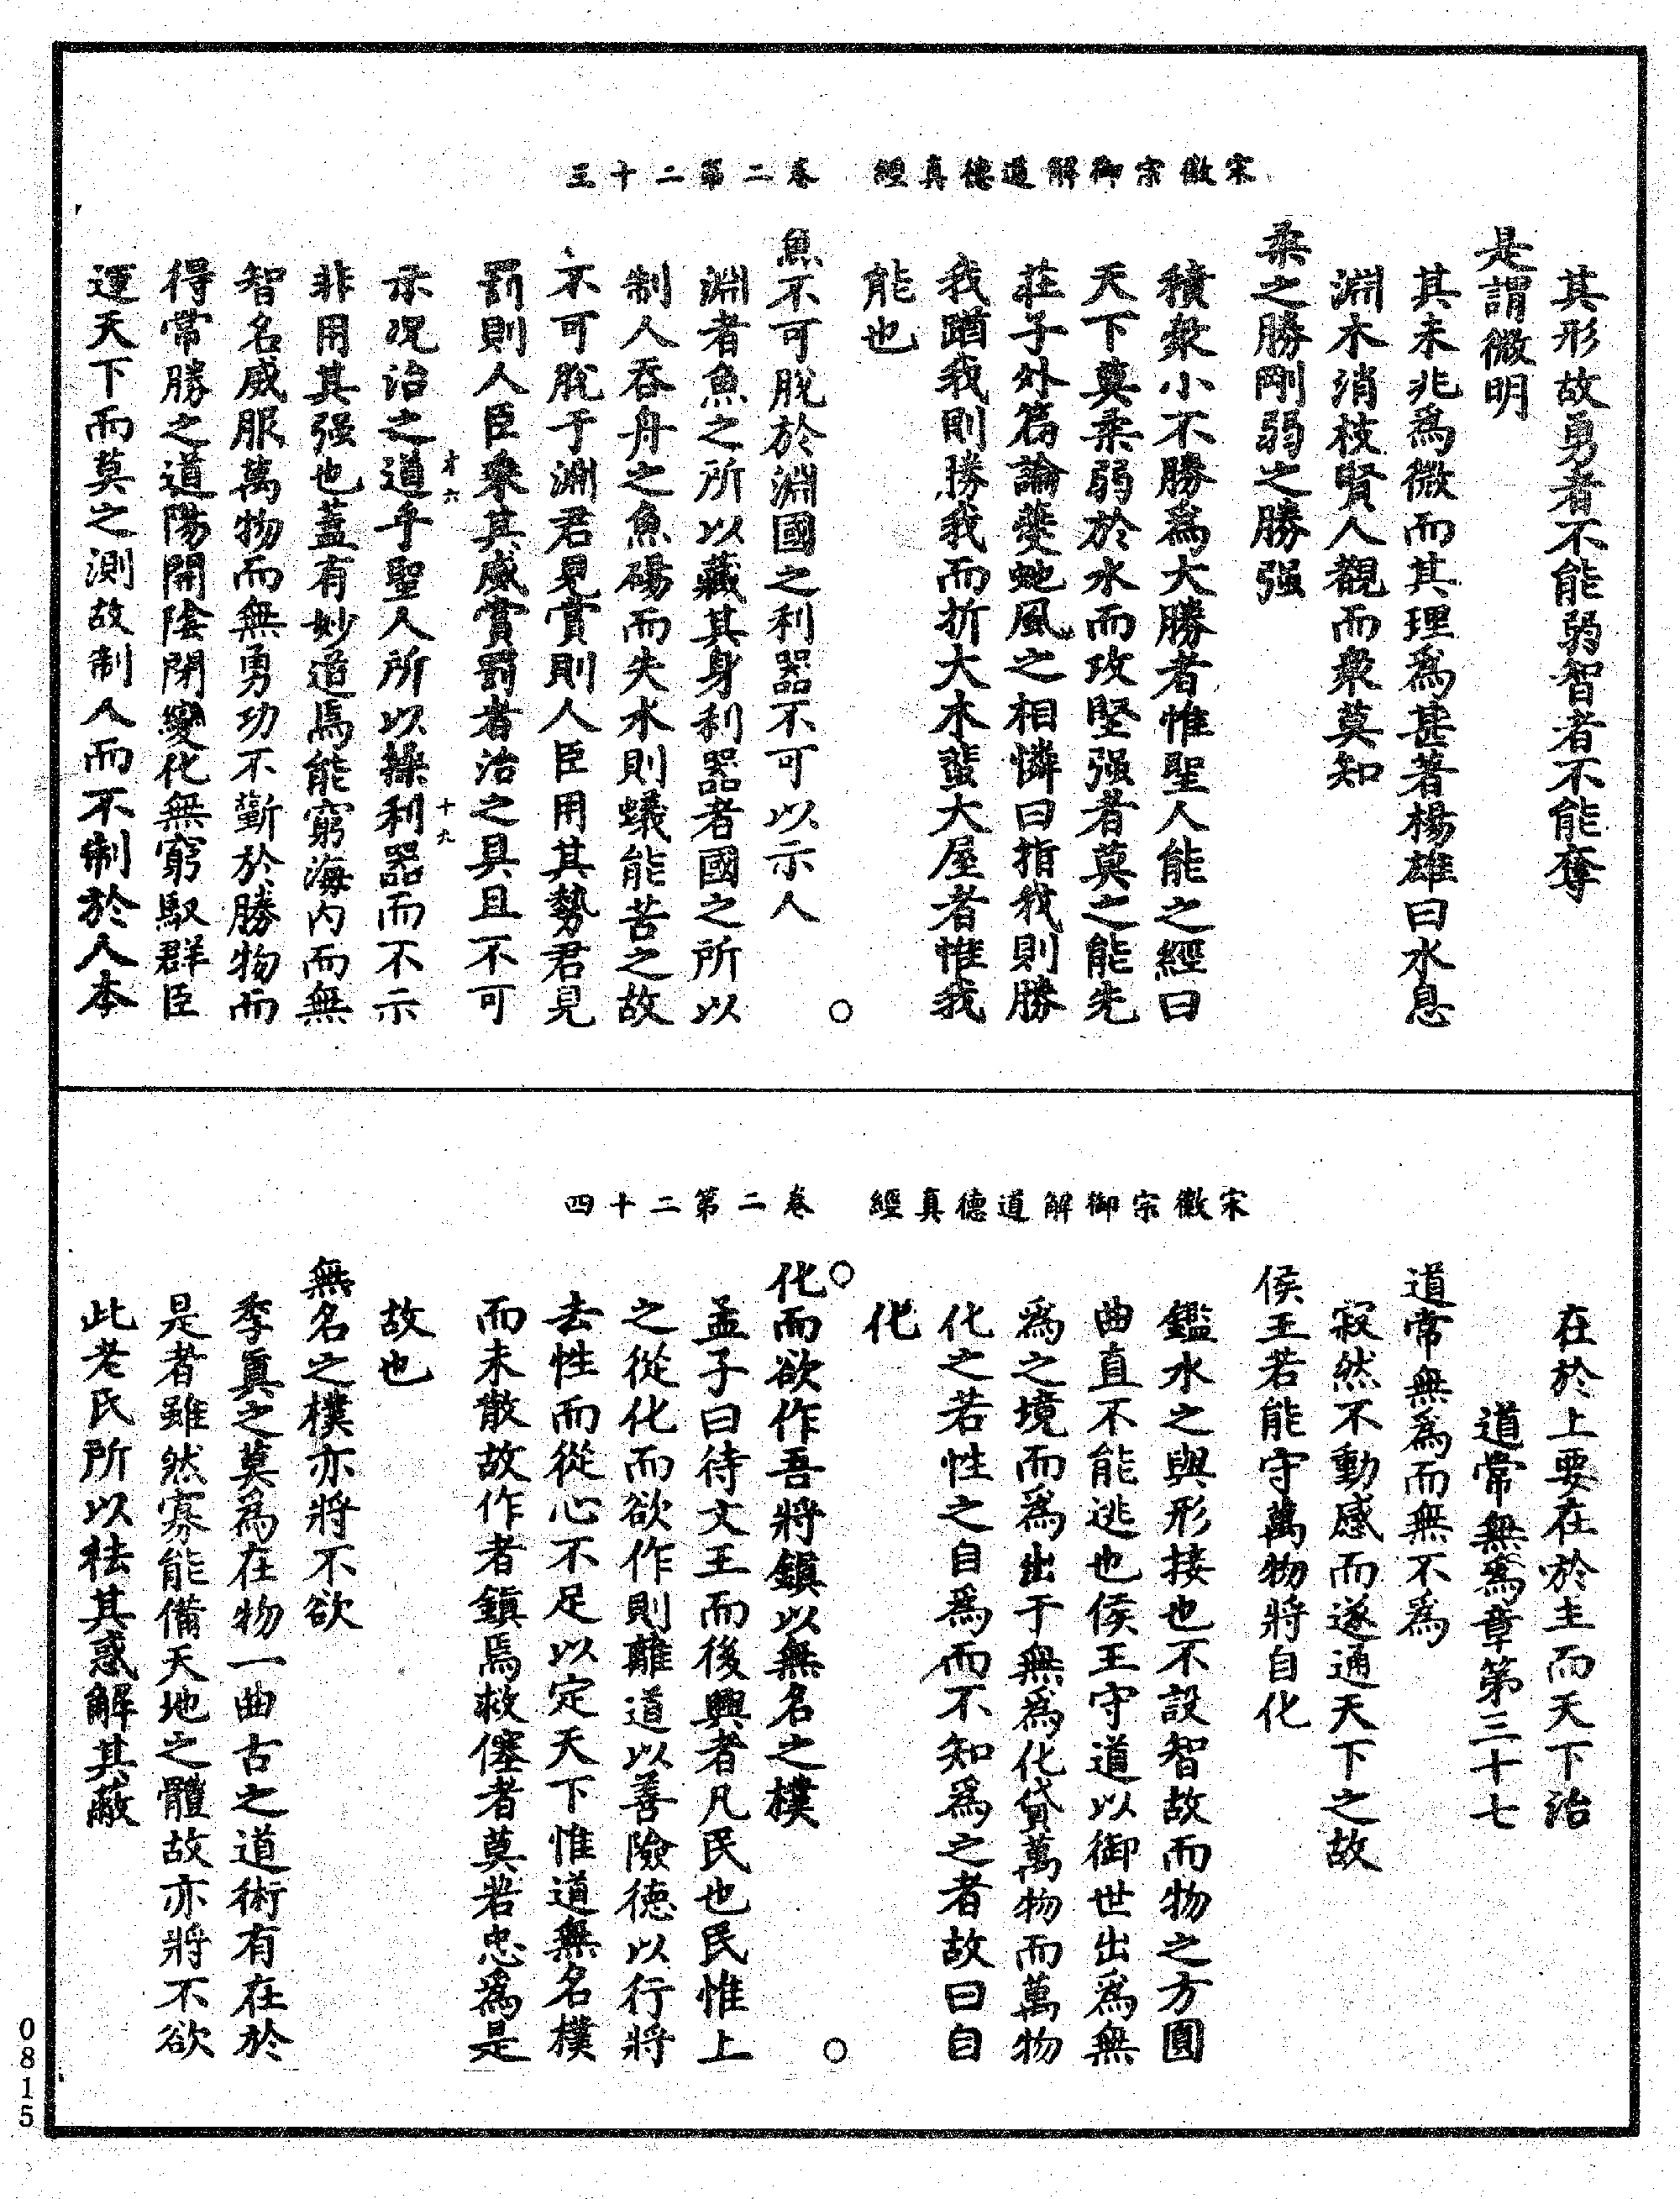 宋徽宗御解道德真經　卷二第二十三
其形故勇者不能弱智者不能奪
是謂微明
其未兆爲微而其理爲甚著楊雄曰水息
淵木消枝賢人覩而衆莫知
柔之勝剛弱之勝强
積衆小不勝爲大勝者惟聖人能之經曰
天下莫柔弱於水而攻堅强者莫之能先
莊子外篇論夔虵風之相憐曰指我則勝
我蹈我則勝我而折大木蜚大屋者惟我
能也
魚不可脫於淵國之利器不可以示人
淵者魚之所以藏其身利器者國之所以
制人吞舟之魚碭而失水則蟻能苦之故
不可脫于淵君見賞則人臣用其勢君見
罰則人臣乘其威賞罰者治之具且不可
才六　十九
示況治之道乎聖人所以操利器而不示
非用其强也蓋有妙道焉能窮海內而無
智名威服萬物而無勇功不勤於勝物而
得常勝之道陽開陰閉變化無窮馭群臣
運天下而莫之測故制人而不制於人本
宋徽宗御解道德真經　卷二第二十四
在於上要在於主而天下治
道常無爲章第三十七
道常無爲而無不爲
寂然不動感而遂通天下之故
侯王若能守萬物將自化
鑑水之與形接也不設智故而物之方圓
曲直不能逃也侯王守道以御世出爲無
爲之境而爲出于無爲化貸萬物而萬物
化之若性之自爲而不知爲之者故曰自
化
化而欲作吾將鎮以無名之樸
孟子曰待文王而後興者凡民也民惟上
之從化而欲作則離道以善險德以行將
去性而從心不足以定天下惟道無名樸
而未散故作者鎮焉救僿者莫若忠爲是
故也
無名之樸亦將不欲
季眞之莫爲在物一曲古之道術有在於
是者雖然寡能備天地之體故亦將不欲
此老氏所以袪其惑解其蔽
0815